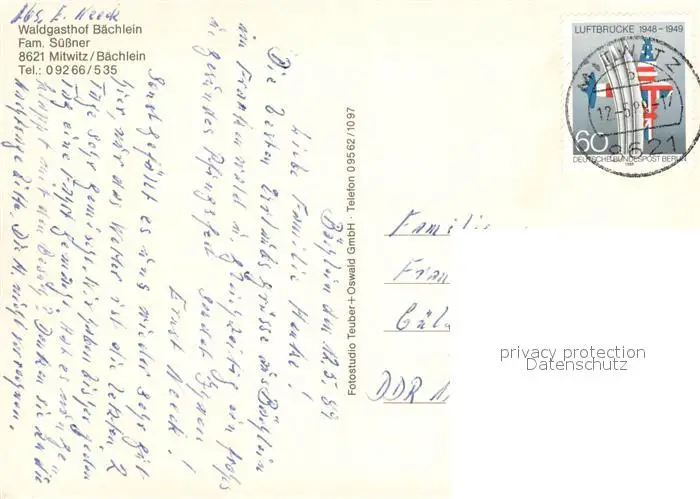 Abs. E. Neeck
Waldgasthof Bächlein
Fam. Süßner
8621 Mitwitz/Bächlein
Tel.: 0 92 66/5 35
Bächlein den 12.5.89
Liebe Familie
Die besten Urlaubsgrüsse aus Bächlein
im Frankenwald u. gleichzeitig ein frohes
u. gesundes Pfingstfest sendet Ihnen
Ernst Neeck!
Sonst gefällt es uns wieder sehr gut
hier, nur das Wetter ist die letzten 2
Tage sehr Wir haben bisher jeden
Tag eine gemacht. Hat es
geklappt mit dem Besuch? Denken Sie an die
bitte. Die nicht vergessen.
Fotostudio Teuber+Oswald GmbH · Telefon 09562/1097
LUFTBRÜCKE 1948-1949
60
DEUTSCHE BUNDESPOST BERLIN
MITWITZ
12.-5.89-17
8621
Familie
DDR
privacy protection
Datenschutz